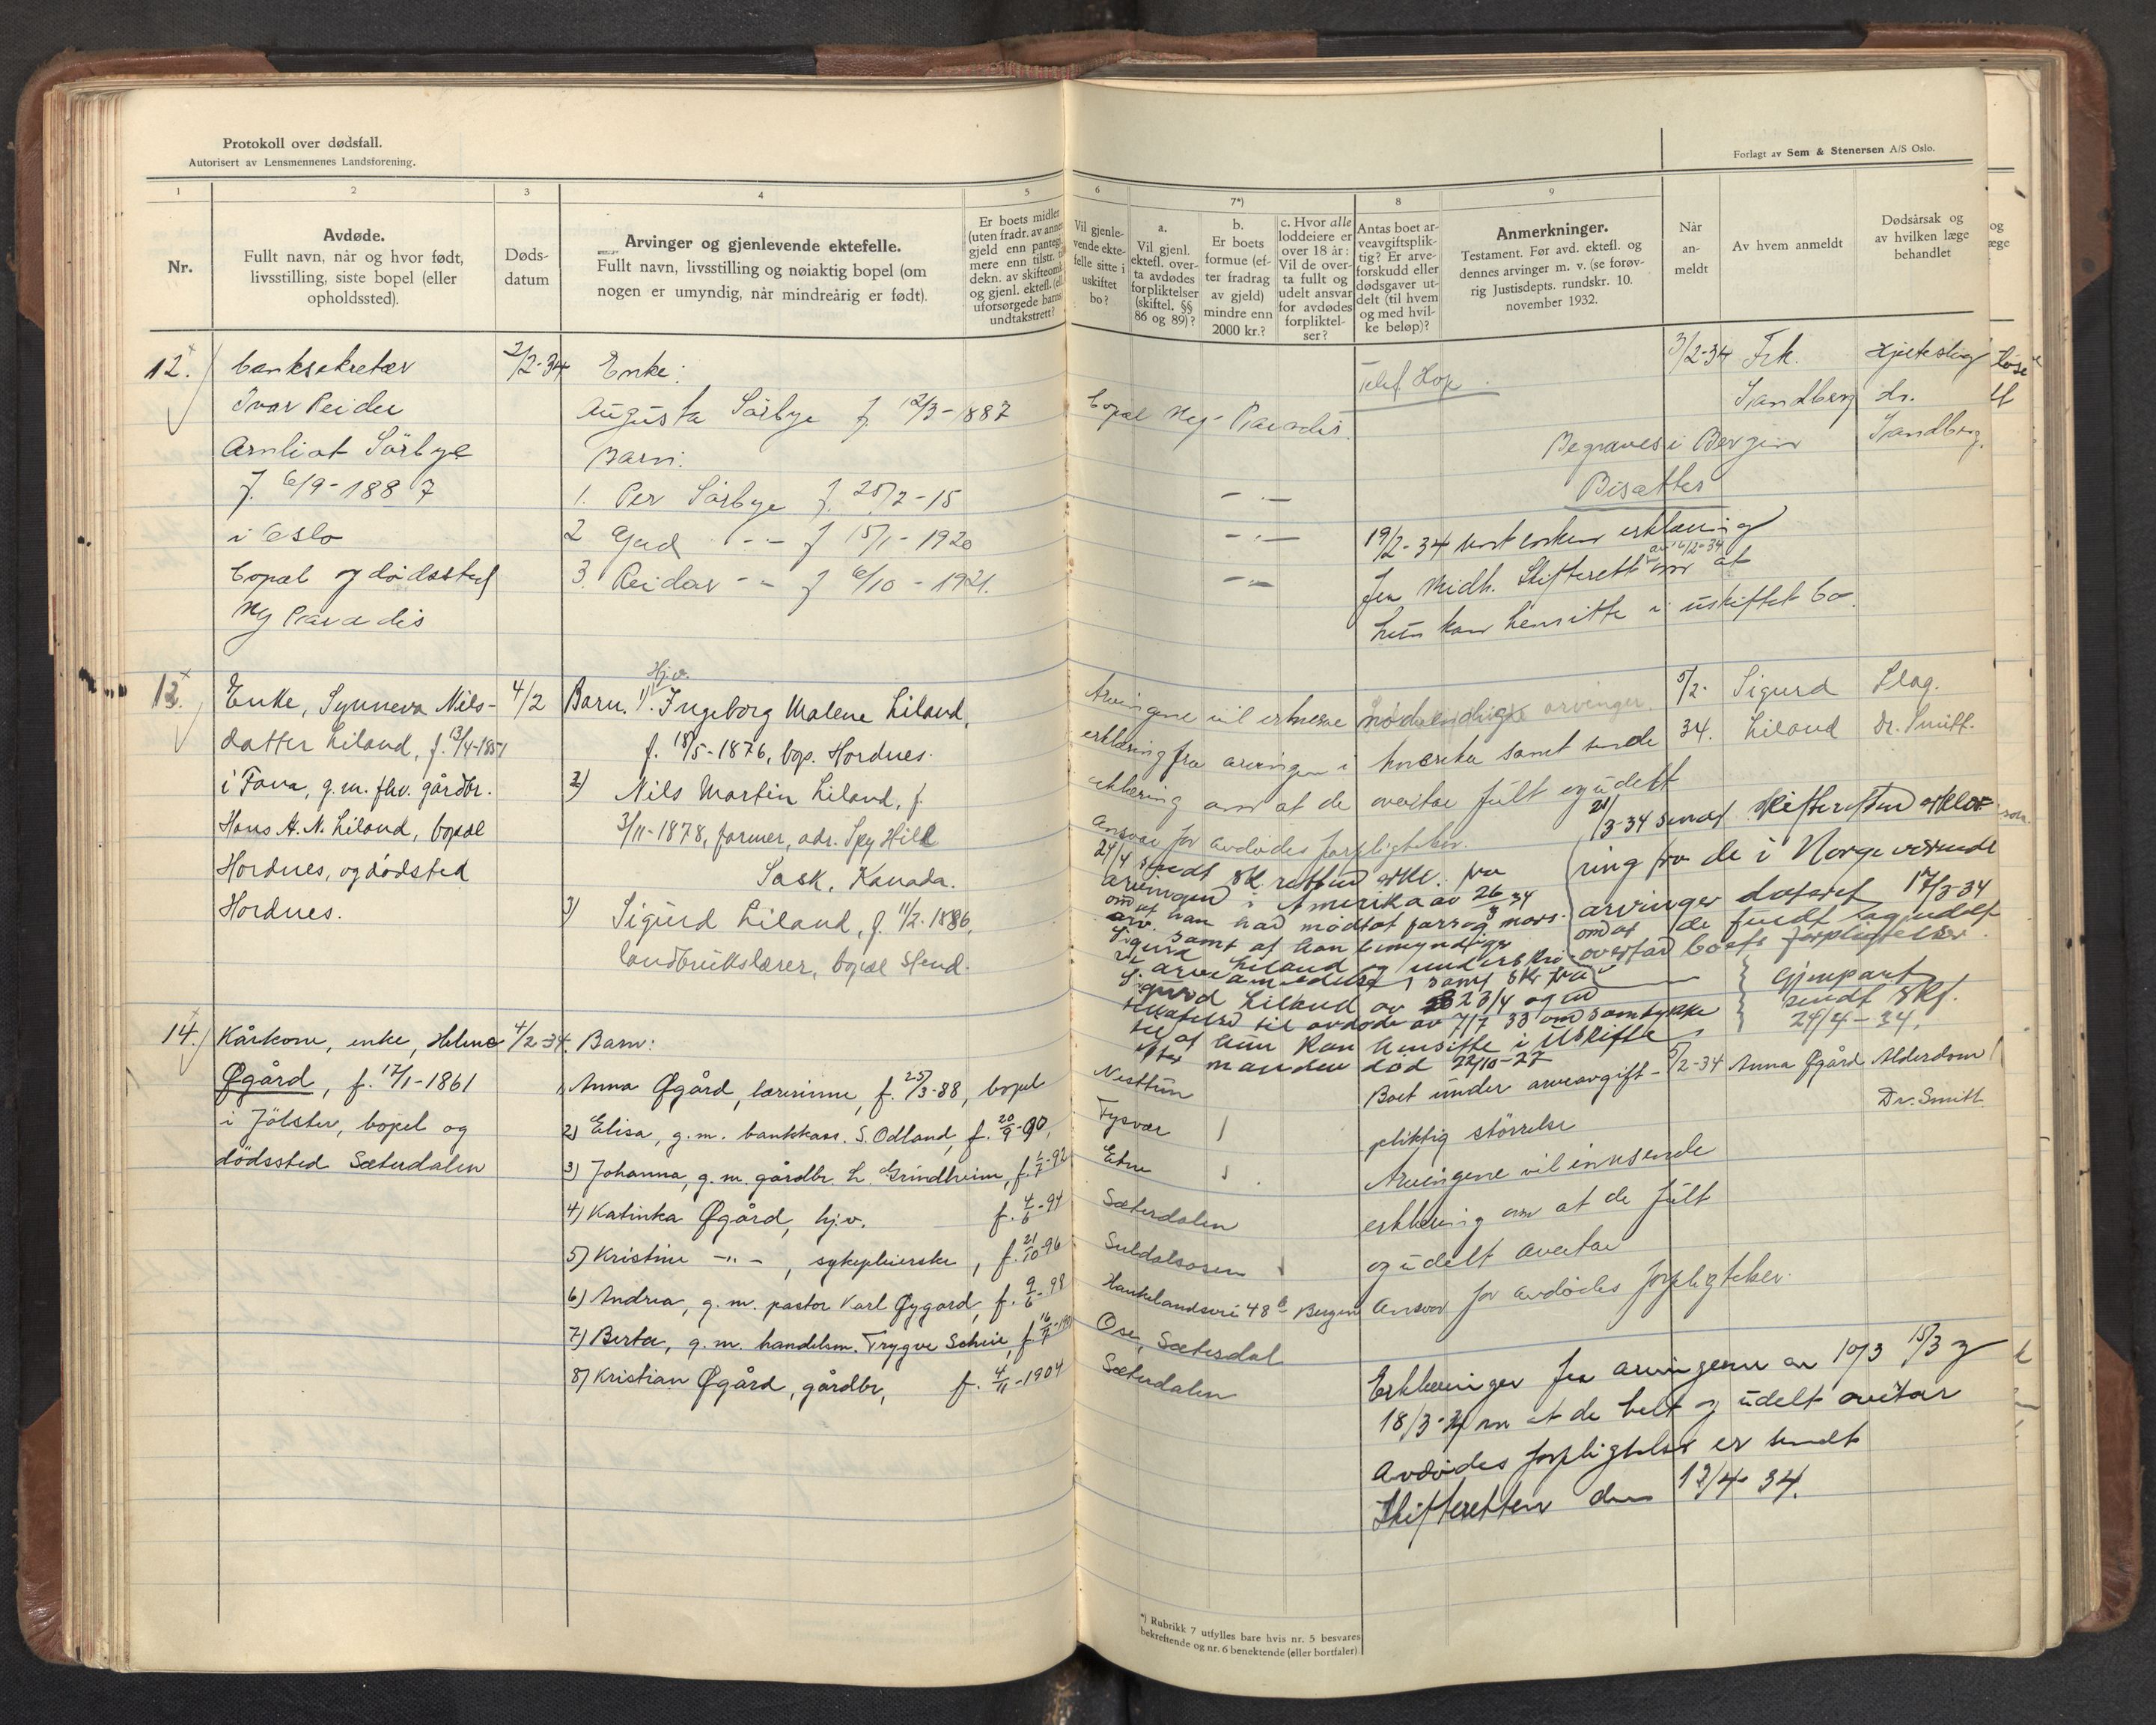 Protokoll over dødsfall.
Autorisert av Lensmennenes Landsforening.
Forlagt av Sem & Stenersen A/S Oslo.
1
2
3
4
5
6
7*)
8
9
Nr.
Avdøde.
Fullt navn, når og hvor født,
livsstilling, siste bopel (eller
opholdssted).
Døds-
datum
Arvinger og gjenlevende ektefelle.
Fullt navn, livsstilling og nøiaktig bopel (om
nogen er umyndig, når mindreårig er født).
Er boets midler
(uten fradr. av annen
gjeld enn pantegj.
mere enn tilstr. til
dekn. av skifteomk.
og gjenl. ektef. (ell.
uforsørgede barns)
undtakstrett?
Vil gjenle-
vende ekte-
felle sitte i
uskiftet
bo?
a.
Vil gjenl.
ektefl. over-
ta avdødes
forpliktelser
(skiftel. §§
86 og 89)?
b.
Er boets
formue (ef-
ter fradrag
av gjeld)
mindre enn
2000 kr.?
c. Hvor alle
loddeiere er
over 18 år:
Vil de over-
ta fullt og
udelt ansvar
for avdødes
forpliktel-
ser?
Antas boet ar-
veavgiftsplik-
tig? Er arve-
forskudd eller
dødsgaver ut-
delt (til hvem
og med hvil-
ke beløp)?
Anmerkninger.
Testament. Før avd. ektefl. og
dennes arvinger m. v. (se forøv-
rig Justisdepts. rundskr. 10.
november 1932.
Når
an-
meldt
Av hvem anmeldt
Dødsårsak og
av hvilken læge
behandlet
12.
banksekretær
Ivar Reider
Arnliot Sörbye
f. 6/9-1887
i Oslo
bopæl og dödssted
Ny Paradis
2/2-34
Enke:
Augusta Sörbye f 12/3-1887
Barn:
1. Per Sörbye f. 25/2-15
2 Gud -"- f 15/1-1920
3. Reidar -"- f 6/10-1921.
bopæl Ny-Paradis.
Telef Hop.
Begraves i Bergen
Bisættes
19/2-34
erklæring
av 16/2-34
fra Midh. Skifterett om at
hun kan hensitte i uskiftet bo.
3/2-34
Frk.
Sandberg
Hjerteslag
dr.
Sandberg.
13.
Enke, Synneva Nils-
datter Liland, f. 13/4-1851
i Fana, g.m. fhv. gårdbr.
Hans A. N. Liland, bopæl
Hordnes, og dødsted
Hordnes.
4/2
Hj.v.
Barn. 1). Ingeborg Malene Liland,
f. 18/5-1876, bop. Hordnes.
2) Nils Martin Liland, f.
3/11-1878, farmer, adr. Spy Hill
Sask, Kanada.
3) Sigurd Liland, f. 11/2.1886,
landbrukslærer, bopæl Stend.
Arvingene vil erhverve nødvendige arvinger.
erklæring fra arvingen i Amerika samt sende
erklæring om at de overtar fult og udelt
ansvar for avdødes forpligtelser.
24/4 sendt sk.retten erkl. fra
arvingen i Amerika av 26/3 34
om at han had modtat farsog mors
arv. samt at han bemyndiger
Sigurd Liland og underskri-
ve arveanmeldelse, samt skr fra
Sigurd Liland av 23/4 og en
tillatelse til avdøde av 7/7 33 om samtykke
til at hun kan hensitte i Uskifte
manden død 22/10-27
21/3-34 sendt Skifteretten erklæ-
ring fra de i Norge værende
arvinger datert 17/3-34
om at de fuldt og udelt
overtar boets forpligtelser.
Gjenpart
sendt Skf.
24/4-34.
5/2-
34.
Sigurd
Liland
Slag.
Dr. Smith.
14.
Kårkone, enke, Helene
Øgård, f. 17/1-1861
i Jölster, bopel og
dödssted Sæterdalen
4/2-34.
Barn:
1) Anna Øgård, lærerinne, f. 25/3-88, bopel
2) Elisa, g.m. bankkass. S. Odland, f. 20/9-90,
3) Johanna, g.m. gårdbr. L. Grindheim, f. 1/7-92
4) Katinka Øgård, hj.v. f. 4/6-94
5) Kristine -"-, sykepleierske, f. 21/10-96
6) Andrea, g.m. pastor Karl Øygard, f. 9/6-98
7) Berta, g.m. handelsm. Trygve Scheie, f. 16/7-1901
8) Kristian Øgård, gårdbr, f. 4/11-1904
Nesttun
Tysvær
Etne
Sæterdalen
Suldalsosen
Haukelandsvei 48 b Bergen
Ose, Sætesdal
Sæterdalen
Boet under arveavgift-
pliktig størrelse
Arvingene vil innsende
erklæring om at de fult
og udelt overtar
ansvar for avdødes forpligtelser.
Erklæringer fra arvingene av 10/3 15/3 og
18/3-34 om at de helt og udelt overtar
avdødes forpligtelser er sendt
Skifteretten den 13/4-34.
5/2-34
Anna Øgård
Alderdom
Dr. Smith
*) Rubrikk 7 utfylles bare hvis nr. 5 besvares
bekreftende og nr. 6 benektende (eller bortfaler)